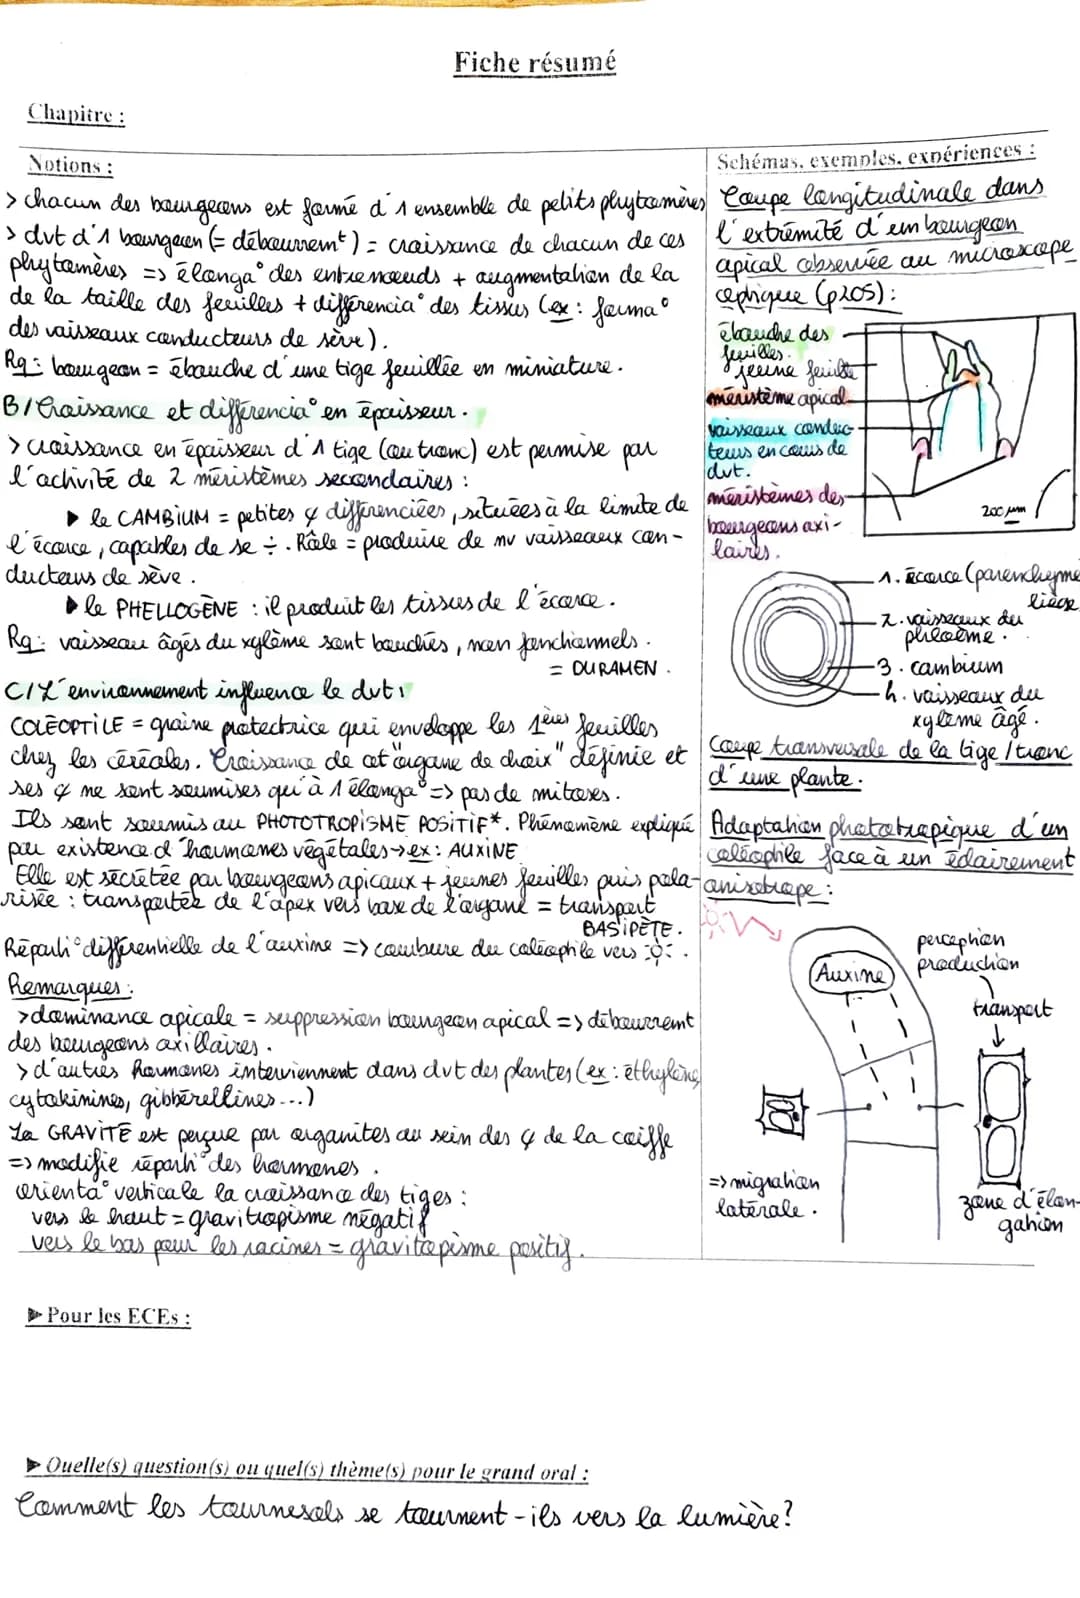 Fiche résumé
Chapitre :
Notions :
> chacun des bourgeons est formé d'1 ensemble de petits phytomères
> dvt d'1 bourgeon (= débourremt) = croissance de chacun de ces
phytomères => élonga° des entrenœuds + augmentation de la
de la taille des feuilles + différencia° des tissus (ex : forma°
des vaisseaux conducteurs de sève).
Rq : bourgeon = ébauche d'une tige feuillée en miniature.
B/ Croissance et différencia° en épaisseur.
> croissance en épaisseur d'1 tige (ou tronc) est permise par
l'activité de 2 méristèmes secondaires :
▶ le CAMBIUM = petites ɣ différenciées, situées à la limite de
l'écorce, capables de se ÷. Rôle = produire de nv vaisseaux con-
ducteurs de sève.
▶ le PHELLOGÈNE : il produit les tissus de l'écorce.
Rq : vaisseau âgés du xylème sont bouchés, non fonctionnels.
= DURAMEN.
C/ L'environnement influence le dvt :
COLÉOPTILE = graine protectrice qui enveloppe les 1ères feuilles
chez les céréales. Croissance de cet "organe de choix" définie et
ses ɣ ne sont soumises qu'à 1 élonga° => pas de mitoses.
Ils sont soumis au PHOTOTROPISME POSITIF*. Phénomène expliqué
par existence d'hormones végétales → ex : AUXINE
Elle est sécrétée par bourgeons apicaux + jeunes feuilles puis pola-
risée : transportée de l'apex vers base de l'organe = transport
BASIPÈTE.
Réparti° différentielle de l'auxine => courbure du coléoptile vers ☼.
Remarques :
> dominance apicale = suppression bourgeon apical => débourremt
des bourgeons axillaires.
> d'autres hormones interviennent dans dvt des plantes (ex : éthylène,
cytokinines, gibbérellines...)
La GRAVITÉ est perçue par organites au sein des ɣ de la coiffe
=> modifie réparti° des hormones.
orienta° verticale la croissance des tiges :
vers le haut = gravitropisme négatif
vers le bas pour les racines = gravitropisme positif.
Schémas, exemples, expériences :
Coupe longitudinale dans
l'extrémité d'un bourgeon
apical observée au microscope
optique (p205) :
ébauche des
feuilles.
jeune feuille
méristème apical
vaisseaux conduc-
teurs en cours de
dvt.
méristèmes des
bourgeons axi-
laires.
200 µm
1. écorce (parenchyme
liège
2. vaisseaux du
phloème.
3. cambium
4. vaisseaux du
xylème âgé.
Coupe transversale de la tige / tronc
d'une plante.
Adaptation phototropique d'un
coléoptile face à un éclairement
anisotrope :
Auxine
perception
production
transport
=> migration
latérale.
zone d'élon-
gation
▶ Pour les ECEs :
▶ Quelle(s) question(s) ou quel(s) thème(s) pour le grand oral :
Comment les tournesols se tournent-ils vers la lumière?